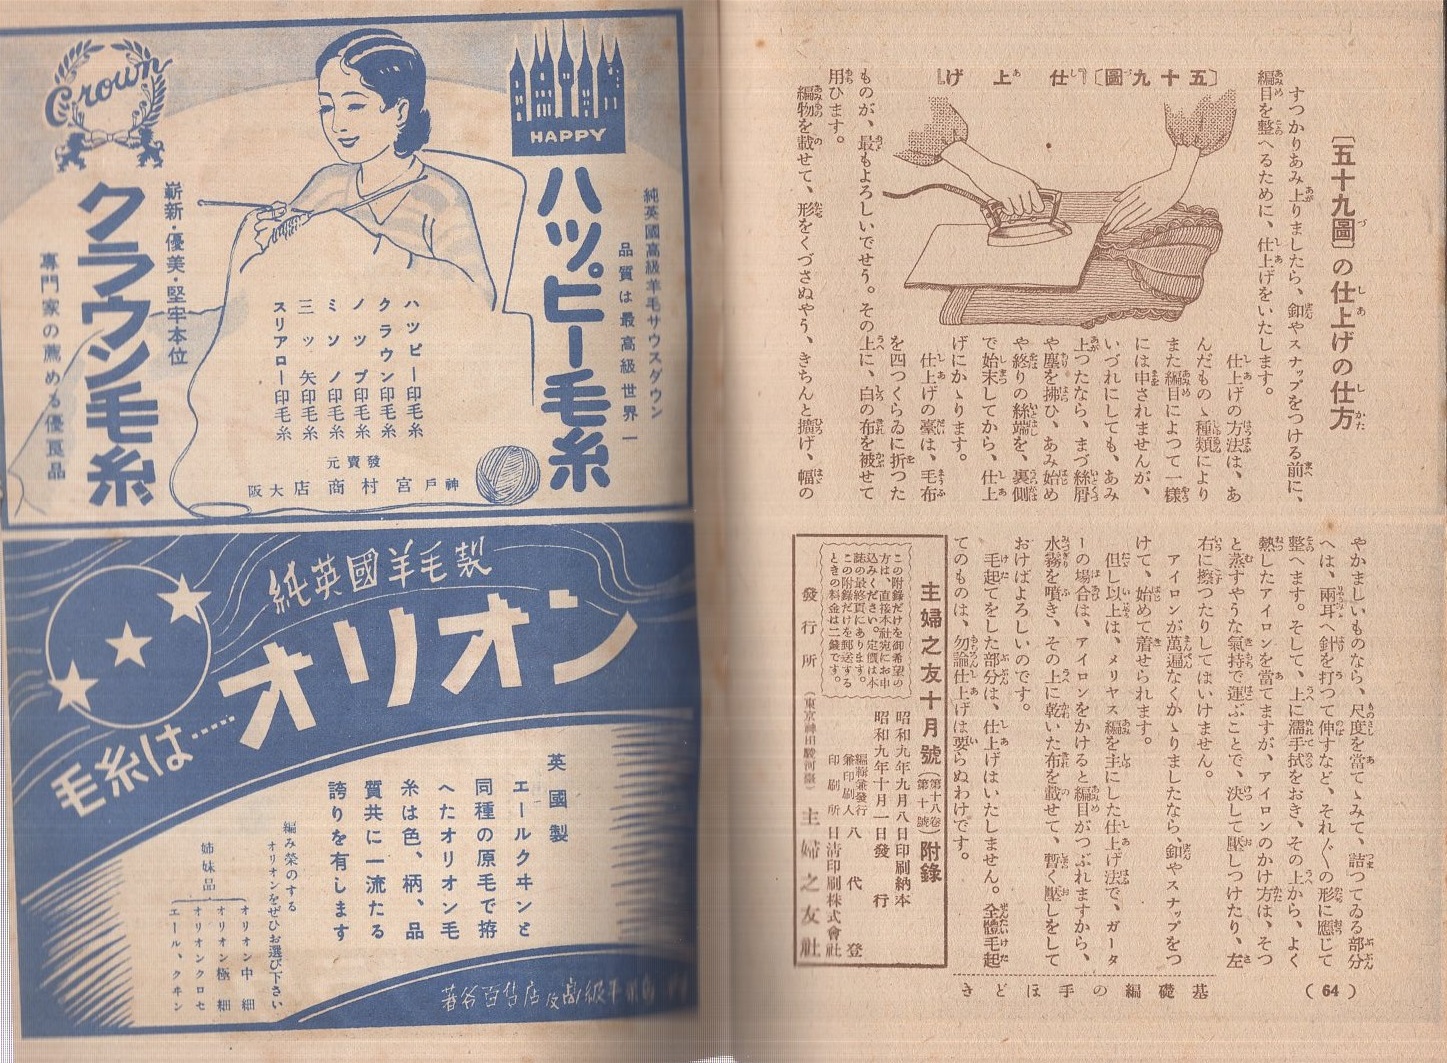 〔五十九圖〕の仕上げの仕方
すつかりあみ上りましたら、釦やスナップをつける前に、
編目を整へるために、仕上げをいたします。
〔五十九圖〕『仕上げ』
仕上げの方法は、あ
んだものゝ種類により
また編目によつて一樣
には申されませんが、
いづれにしても、あみ
上つたなら、まづ絲屑
や塵を拂ひ、あみ始め
や終りの絲端を、裏側
で始末してから、仕上
げにかゝります。
仕上げの臺は、毛布
を四つくらゐに折つた
ものが、最もよろしいでせう。その上に、白の布を被せて
用ひます。
編物を載せて、形をくづさぬやう、きちんと擴げ、幅の
やかましいものなら、尺度を當てゝみて、詰つてゐる部分
へは、兩耳へ針を打つて伸すなど、それ〴〵の形に應じて
整へます。そして、上に濡手拭をおき、その上から、よく
熱したアイロンを當てますが、アイロンのかけ方は、そつ
と蒸すやうな氣持で運ぶことで、決して壓しつけたり、左
右に擦つたりしてはいけません。
アイロンが萬遍なくかゝりましたなら、釦やスナップをつ
けて、始めて着せられます。
但し以上は、メリヤス編を主にした仕上げ法で、ガータ
ーの場合は、アイロンをかけると編目がつぶれますから、
水霧を噴き、その上に乾いた布を載せて、暫く壓しをして
おけばよろしいのです。
毛起てをした部分は、仕上げはいたしません。全體毛起
てのものは、勿論仕上げは要らぬわけです。
主婦之友十月號（第十八卷第十號）附錄
この附錄だけを御希望の
方は、直接本社宛にお申
込みください。定價は本
誌の最終頁にあります。
この附錄だけを郵送する
ときの料金は二錢です。
昭和九年九月八日印刷納本
昭和九年十月一日發行
編輯兼發行兼印刷人 八代登
印刷所 日淸印刷株式會社
發行所（東京神田駿河臺）主婦之友社
基礎編の手ほどき
（64）
HAPPY
純英國高級羊毛サウスダウン
品質は最高級世界一
ハッピー毛糸
ハッピー印毛糸
クラウン印毛糸
ノップ印毛糸
ミソノ印毛糸
三ッ矢印毛糸
スリアロー印毛糸
發賣元
神戸 宮村商店 大阪
Crown
嶄新・優美・堅牢本位
クラウン毛糸
專門家の薦める優良品
純英國羊毛製
オリオン
毛糸は……
英國製
エールクヰンと
同種の原毛で拵
へたオリオン毛
糸は色、柄、品
質共に一流たる
誇りを有します
編み榮のする
オリオンをぜひお選び下さい
姉妹品
オリオン中細
オリオン極細
オリオンクロセ
エール、クヰン